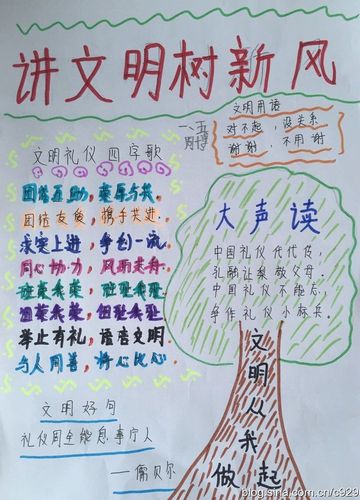 讲文明树新风
文明用语
对不起,没关系
谢谢,不用谢
文明礼仪四字歌
团结互助,荣辱与共.
团结友爱,携手共进.
求实上进,争创一流
同心协力,风雨同舟
举止有礼,语言文明
与人同善,将心比心
大声读
中国礼仪代代传,
孔融让梨敬父母.
中国礼仪不能忘,
争作礼仪小标兵.
文明从我做起
文明好句
礼仪周全能息事宁人
——儒贝尔
blog.sina.com.cn/c929